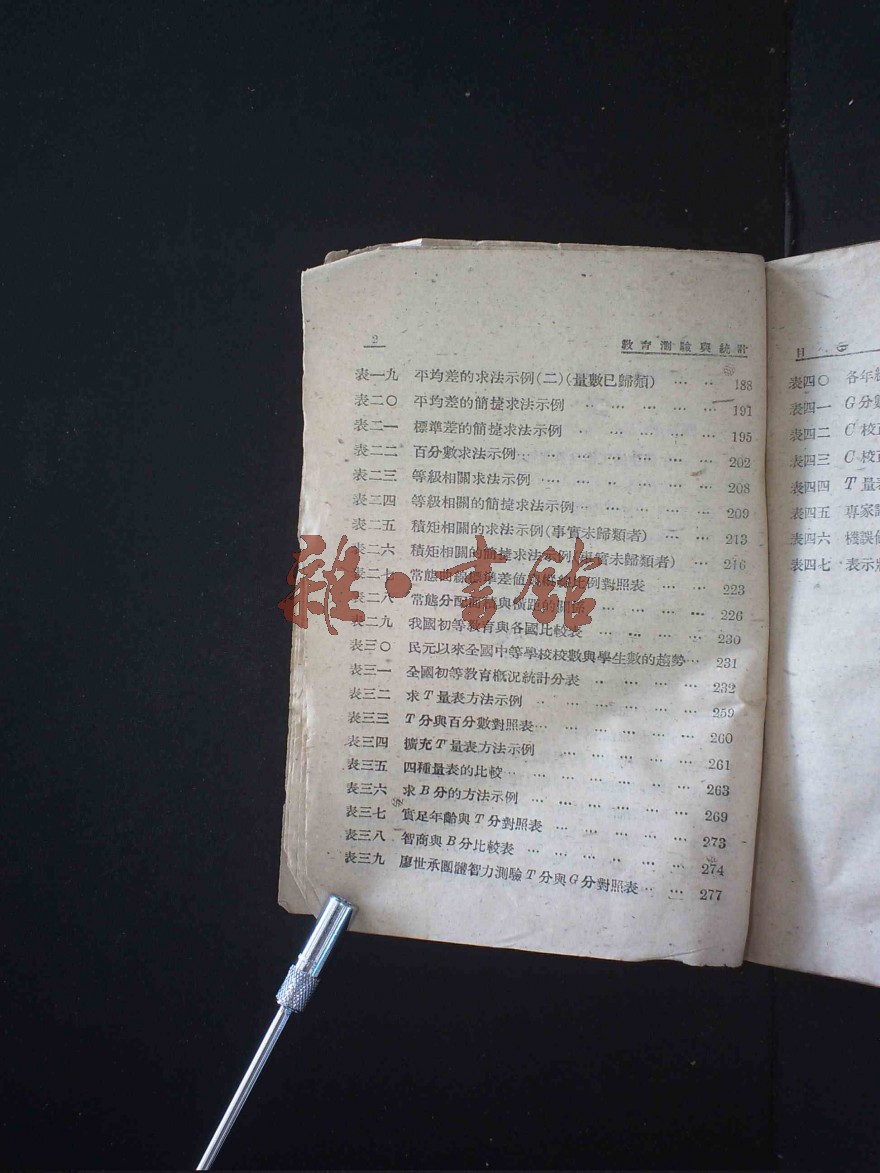 2 教育測驗與統計
表一九 平均差的求法示例(二)(量數已歸類) … ‥ 188
表二〇 平均差的簡捷求法示例 … … … … … 191
表二一 標準差的簡捷求法示例 … … … … … 195
表二二 百分數求法示例… … … … … … … 202
表二三 等級相關求法示例 … … … … … … 208
表二四 等級相關的簡捷求法示例… … … … … 209
表二五 積矩相關的求法示例(事實未歸類者) … … 213
表二六 積矩相關的簡捷求法示例(事實未歸類者) … 216
表二七 常態曲線標準差值與 比例對照表 … … 223
表二八 常態分配面積與橫距的關係 … … … … 226
表二九 我國初等教育與各國比較表 … … … … 230
表三〇 民元以來全國中等學校校數與學生數的趨勢… 231
表三一 全國初等教育概況統計分表 … … … … 232
表三二 求T量表方法示例 … … … … … … 259
表三三 T分與百分數對照表… … … … … … 260
表三四 擴充T量表方法示例 … … … … … 261
表三五 四種量表的比較… … … … … … … 263
表三六 求B分的方法示例 … … … … … … 269
表三七 實足年齡與T分對照表 … … … … … 273
表三八 智商與B分比較表 … … … … … … 274
表三九 廖世承團體智力測驗T分與G分對照表… … 277
目
表四〇 各年級
表四一 G分數
表四二 C校正
表四三 C校正
表四四 T量表
表四五 專家
表四六 機誤
表四七 表示
雜·書館